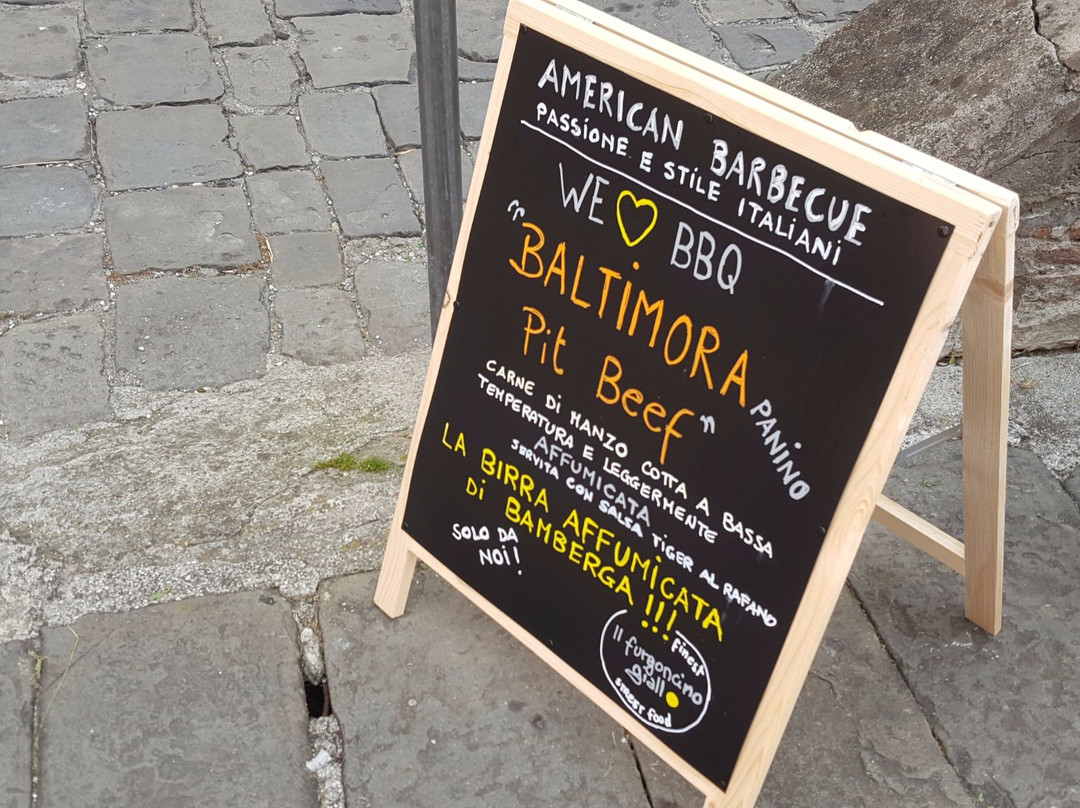 AMERICAN BARBECUE
PASSIONE E STILE ITALIANI
WE BBQ
"BALTIMORA
Pit Beef"
PANINO
CARNE Di MANZO COTTA A BASSA
TEMPERATURA E LEGGERMENTE
AFFUMICATA
SERVITA CON SALSA TIGER AL RAFANO
LA BIRRA AFFUMICATA
Di BAMBERGA !!!
SOLO DA
NOI!
finest
Il furgoncino
giallo
street food